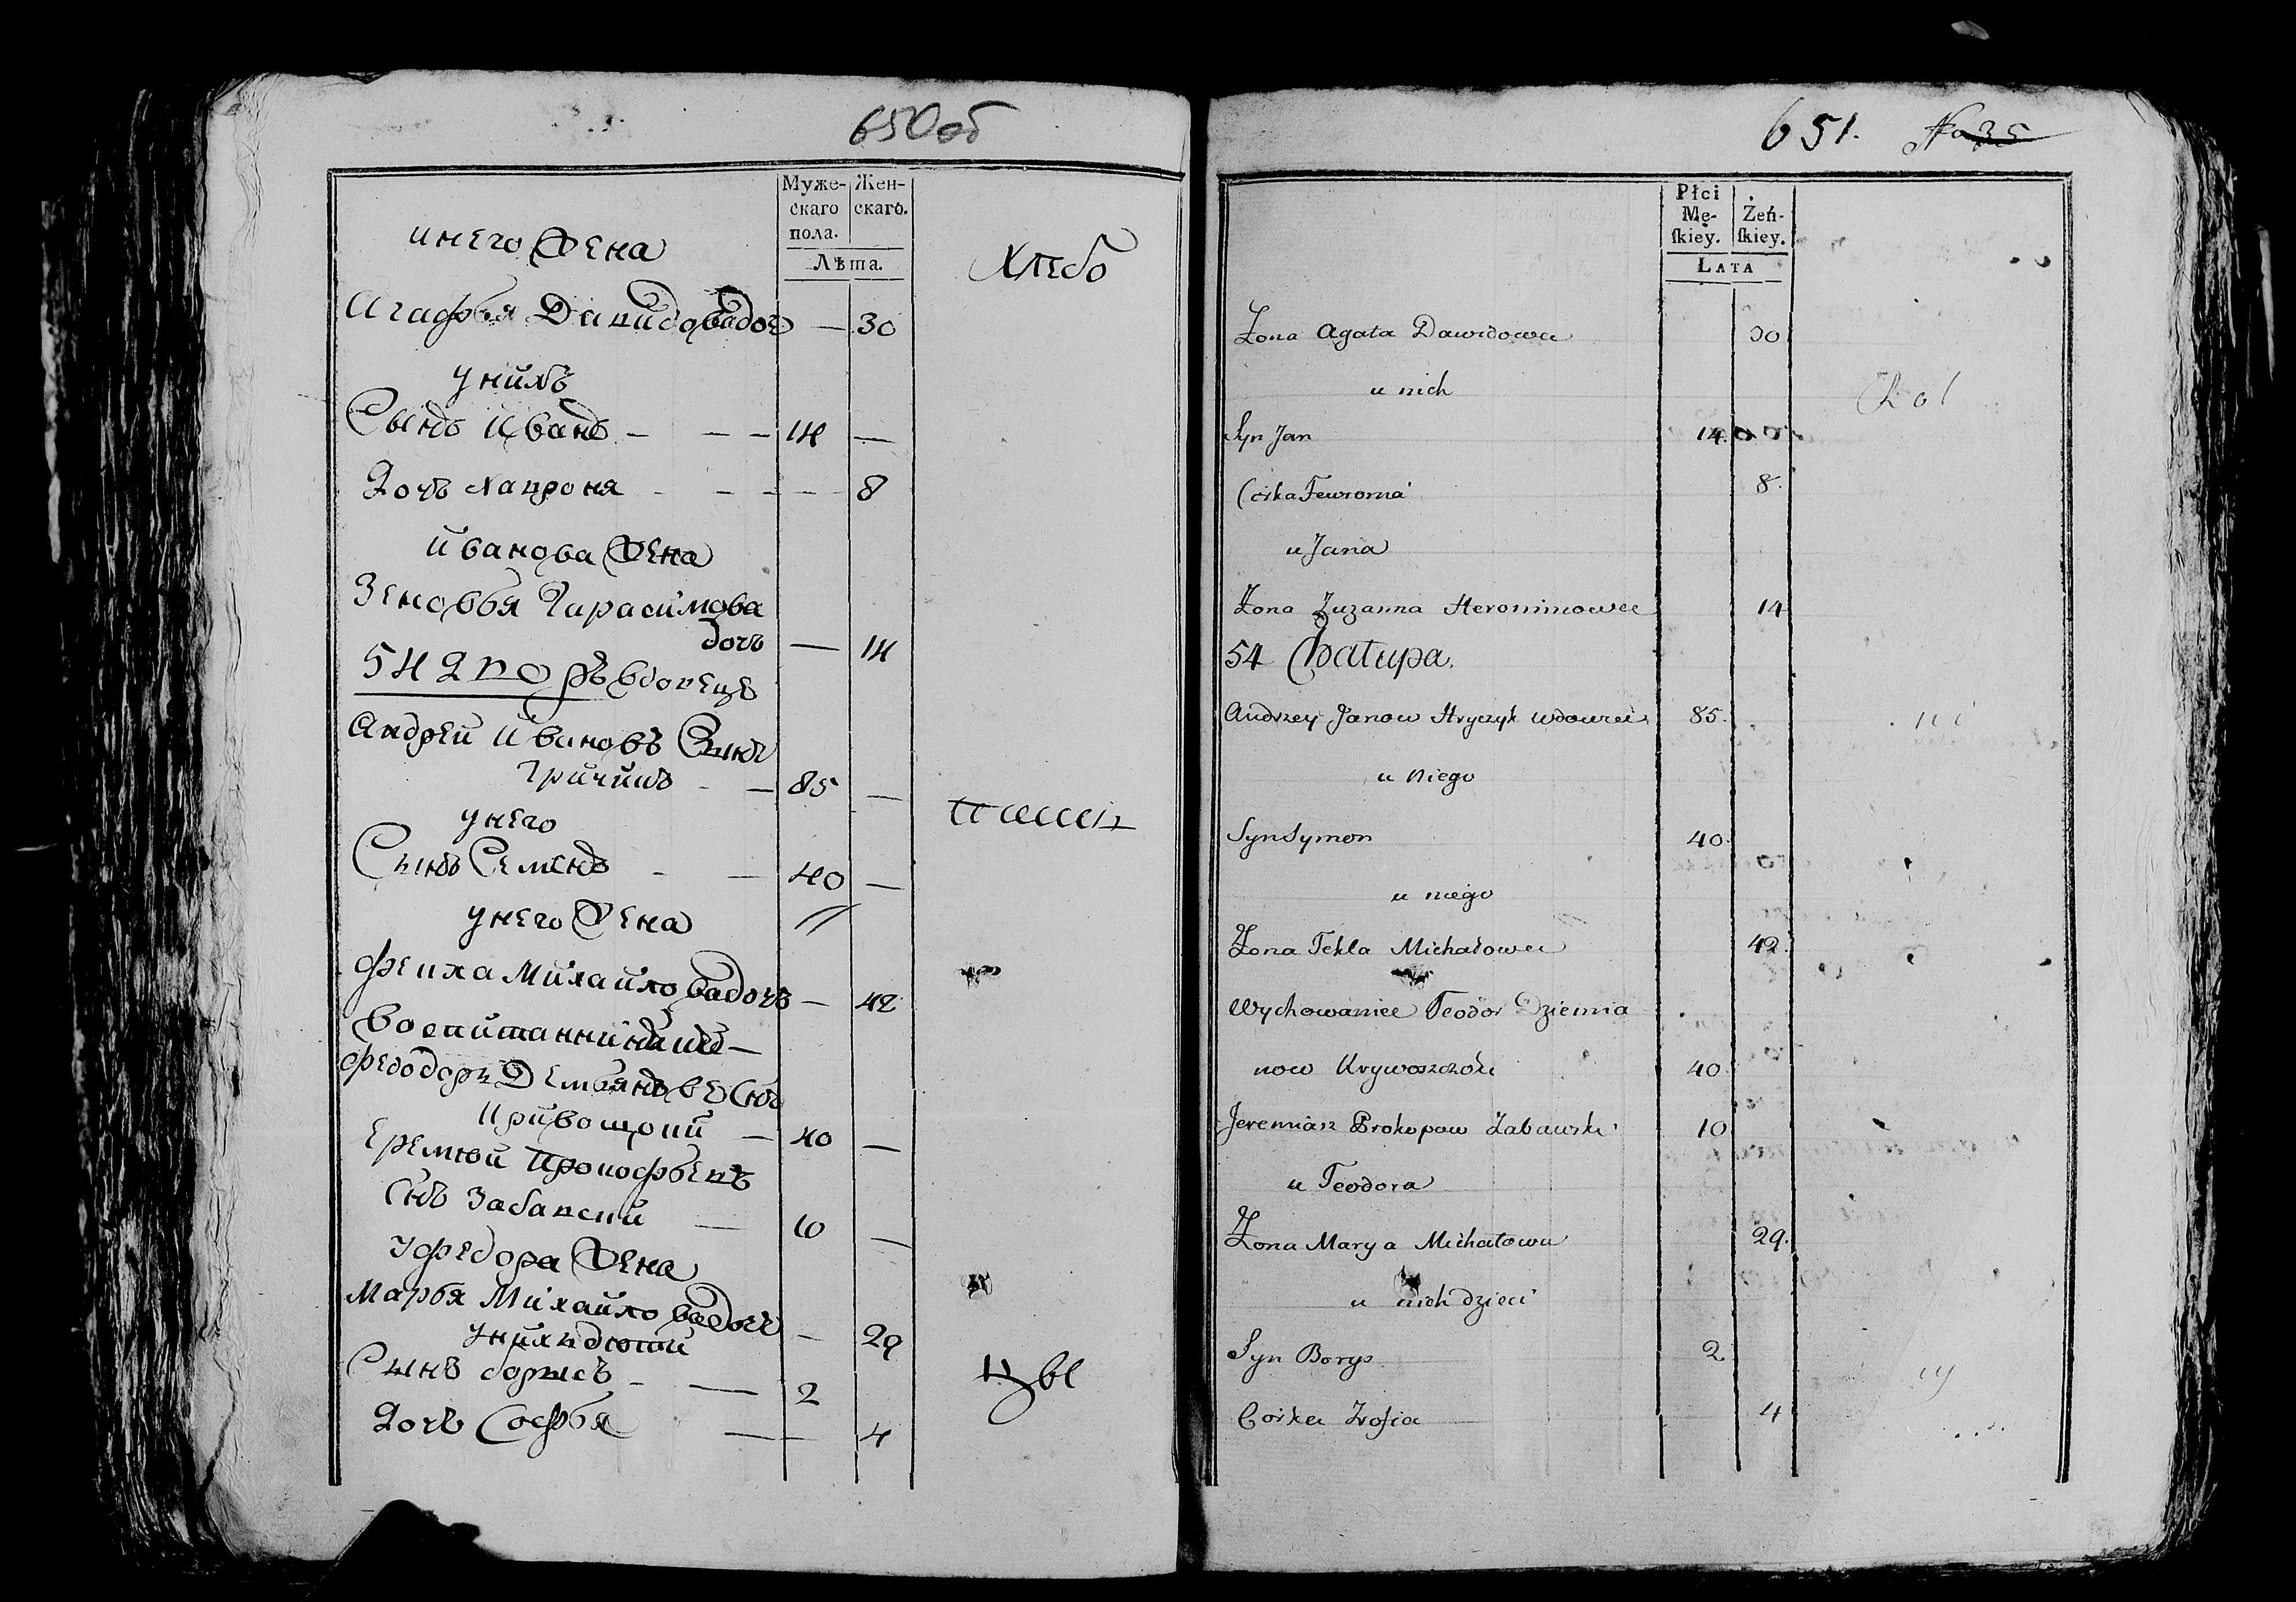 650об
Муже-
скаго
пола.
Жен-
скаго.
Лѣта.
инего Жена
Хлебо
Агафья Давидовадоч — 30
унихъ
Сынъ Иванъ — — — 14 —
Дочъ Хапроня — — — — 8
Иванова Жена
Зеновья Гарасимова
дочъ — 14
54 Дворъ вдовеце
Андрей Ивановъ Сынъ
Гричикъ — — 85 —
унего
Сынъ Семенъ — — 40 —
унего Жена
Фенха Михайловадочъ — 42
Воспитанний
Федоръ Демьяновъ Снъ
Кривощокий — 40 —
Еремѣй Прокофьевъ
Снъ Забавский — 10 —
уфедора Жена
Марья Михайловадочъ — 29
унихъ дѣтей
Сынъ борисъ — — 2
Дочъ Софья — — 4
цы
651. No 35
Płci
Mę-
ſkiey.
Żeń-
ſkiey.
LATA
Żona Agata Dawidowa 30
u nich
Syn Jan 14.
Córka Fewronia 8.
u Jana
Żona Zuzanna Heronimowa 14
54 Chatupa.
Andrzey Janow Hryczyk wdowiec 85.
u niego
Syn Symon 40.
u niego
Żona Tekla Michałowa 42.
Wychowaniec Teodor Dziemia
now Krywoszczoki 40
Jeremiasz Prokopow Zabawski 10
u Teodora
Żona Marya Michałowa 29.
u nich dzieci
Syn Borys 2
Corka Zofia 4